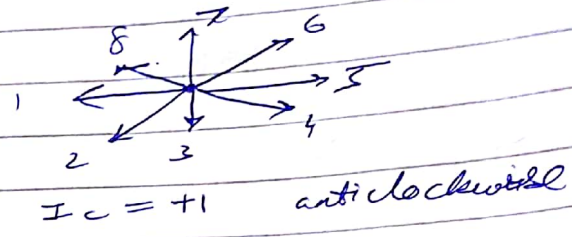 7
6
8
5
1
4
2
3
Ic = +1 anticlockwise